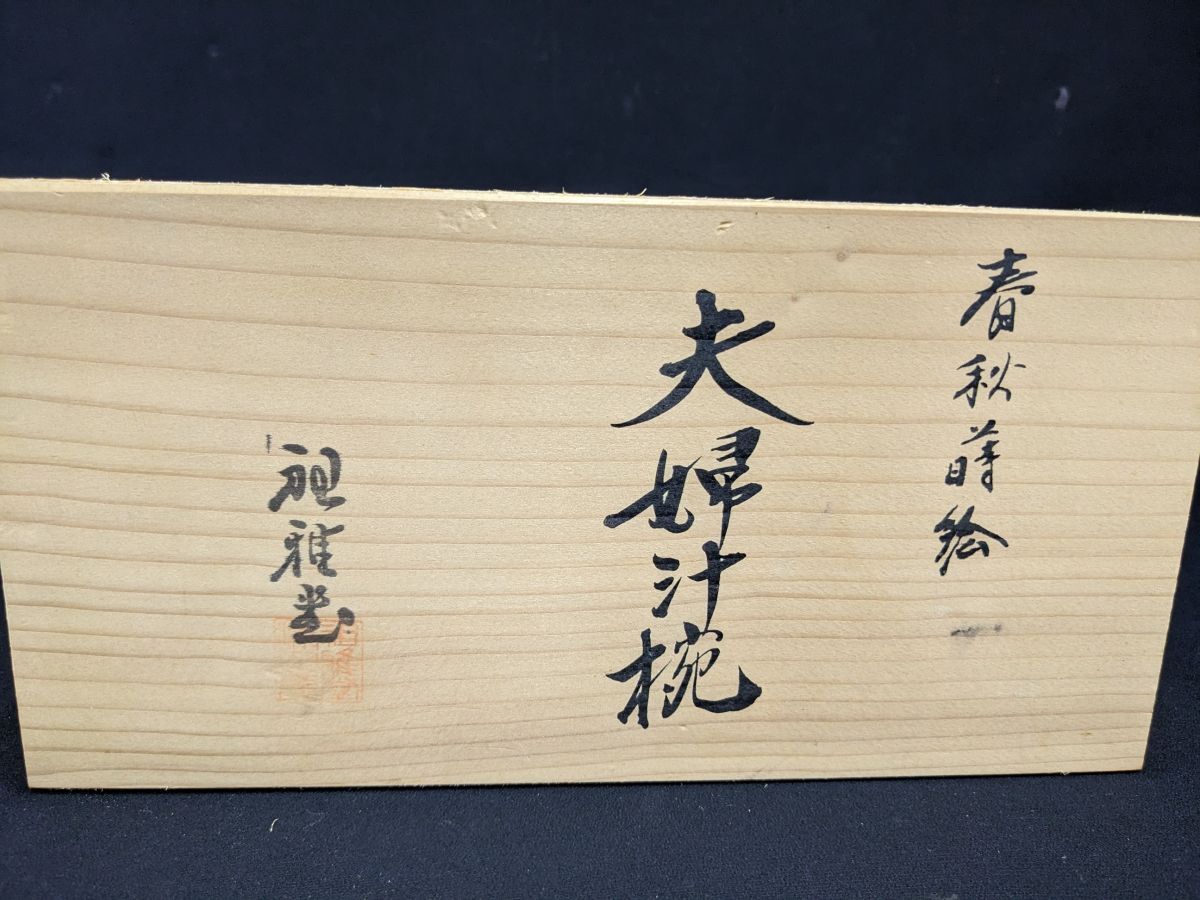 春秋蒔絵
夫婦汁椀
雅堂